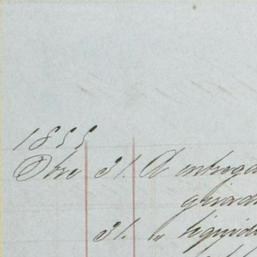 1855
Dbre 31. A entrega
31. " liquid